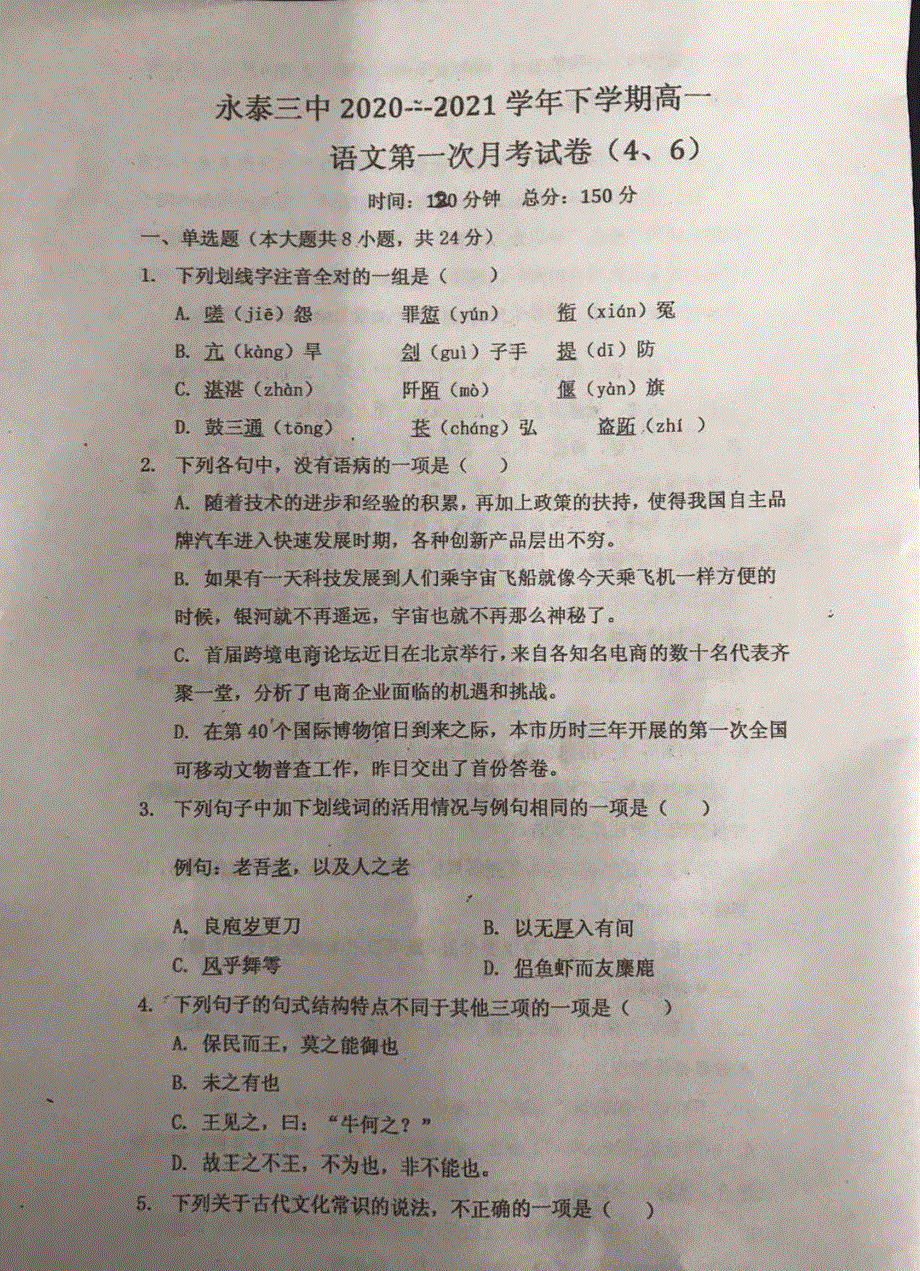 永泰三中 2020---2021 学年下学期高一
语文第一次月考试卷（4、6）
时间：120分钟 总分：150分
一、单选题（本大题共8小题，共24分）
1. 下列划线字注音全对的一组是（ ）
A. 嗟（jiē）怨 罪愆（yún） 衔（xián）冤
B. 亢（kàng）旱 刽（guì）子手 提（dī）防
C. 湛湛（zhàn） 阡陌（mò） 偃（yàn）旗
D. 鼓三通（tōng） 苌（cháng）弘 盗跖（zhí ）
2. 下列各句中，没有语病的一项是（ ）
A. 随着技术的进步和经验的积累，再加上政策的扶持，使得我国自主品
牌汽车进入快速发展时期，各种创新产品层出不穷。
B. 如果有一天科技发展到人们乘宇宙飞船就像今天乘飞机一样方便的
时候，银河就不再遥远，宇宙也就不再那么神秘了。
C. 首届跨境电商论坛近日在北京举行，来自各知名电商的数十名代表齐
聚一堂，分析了电商企业面临的机遇和挑战。
D. 在第40个国际博物馆日到来之际，本市历时三年开展的第一次全国
可移动文物普查工作，昨日交出了首份答卷。
3. 下列句子中加下划线词的活用情况与例句相同的一项是（ ）
例句：老吾老，以及人之老
A. 良庖岁更刀 B. 以无厚入有间
C. 风乎舞雩 D. 侣鱼虾而友麋鹿
4. 下列句子的句式结构特点不同于其他三项的一项是（ ）
A. 保民而王，莫之能御也
B. 未之有也
C. 王见之，曰：“牛何之？”
D. 故王之不王，不为也，非不能也。
5. 下列关于古代文化常识的说法，不正确的一项是（ ）